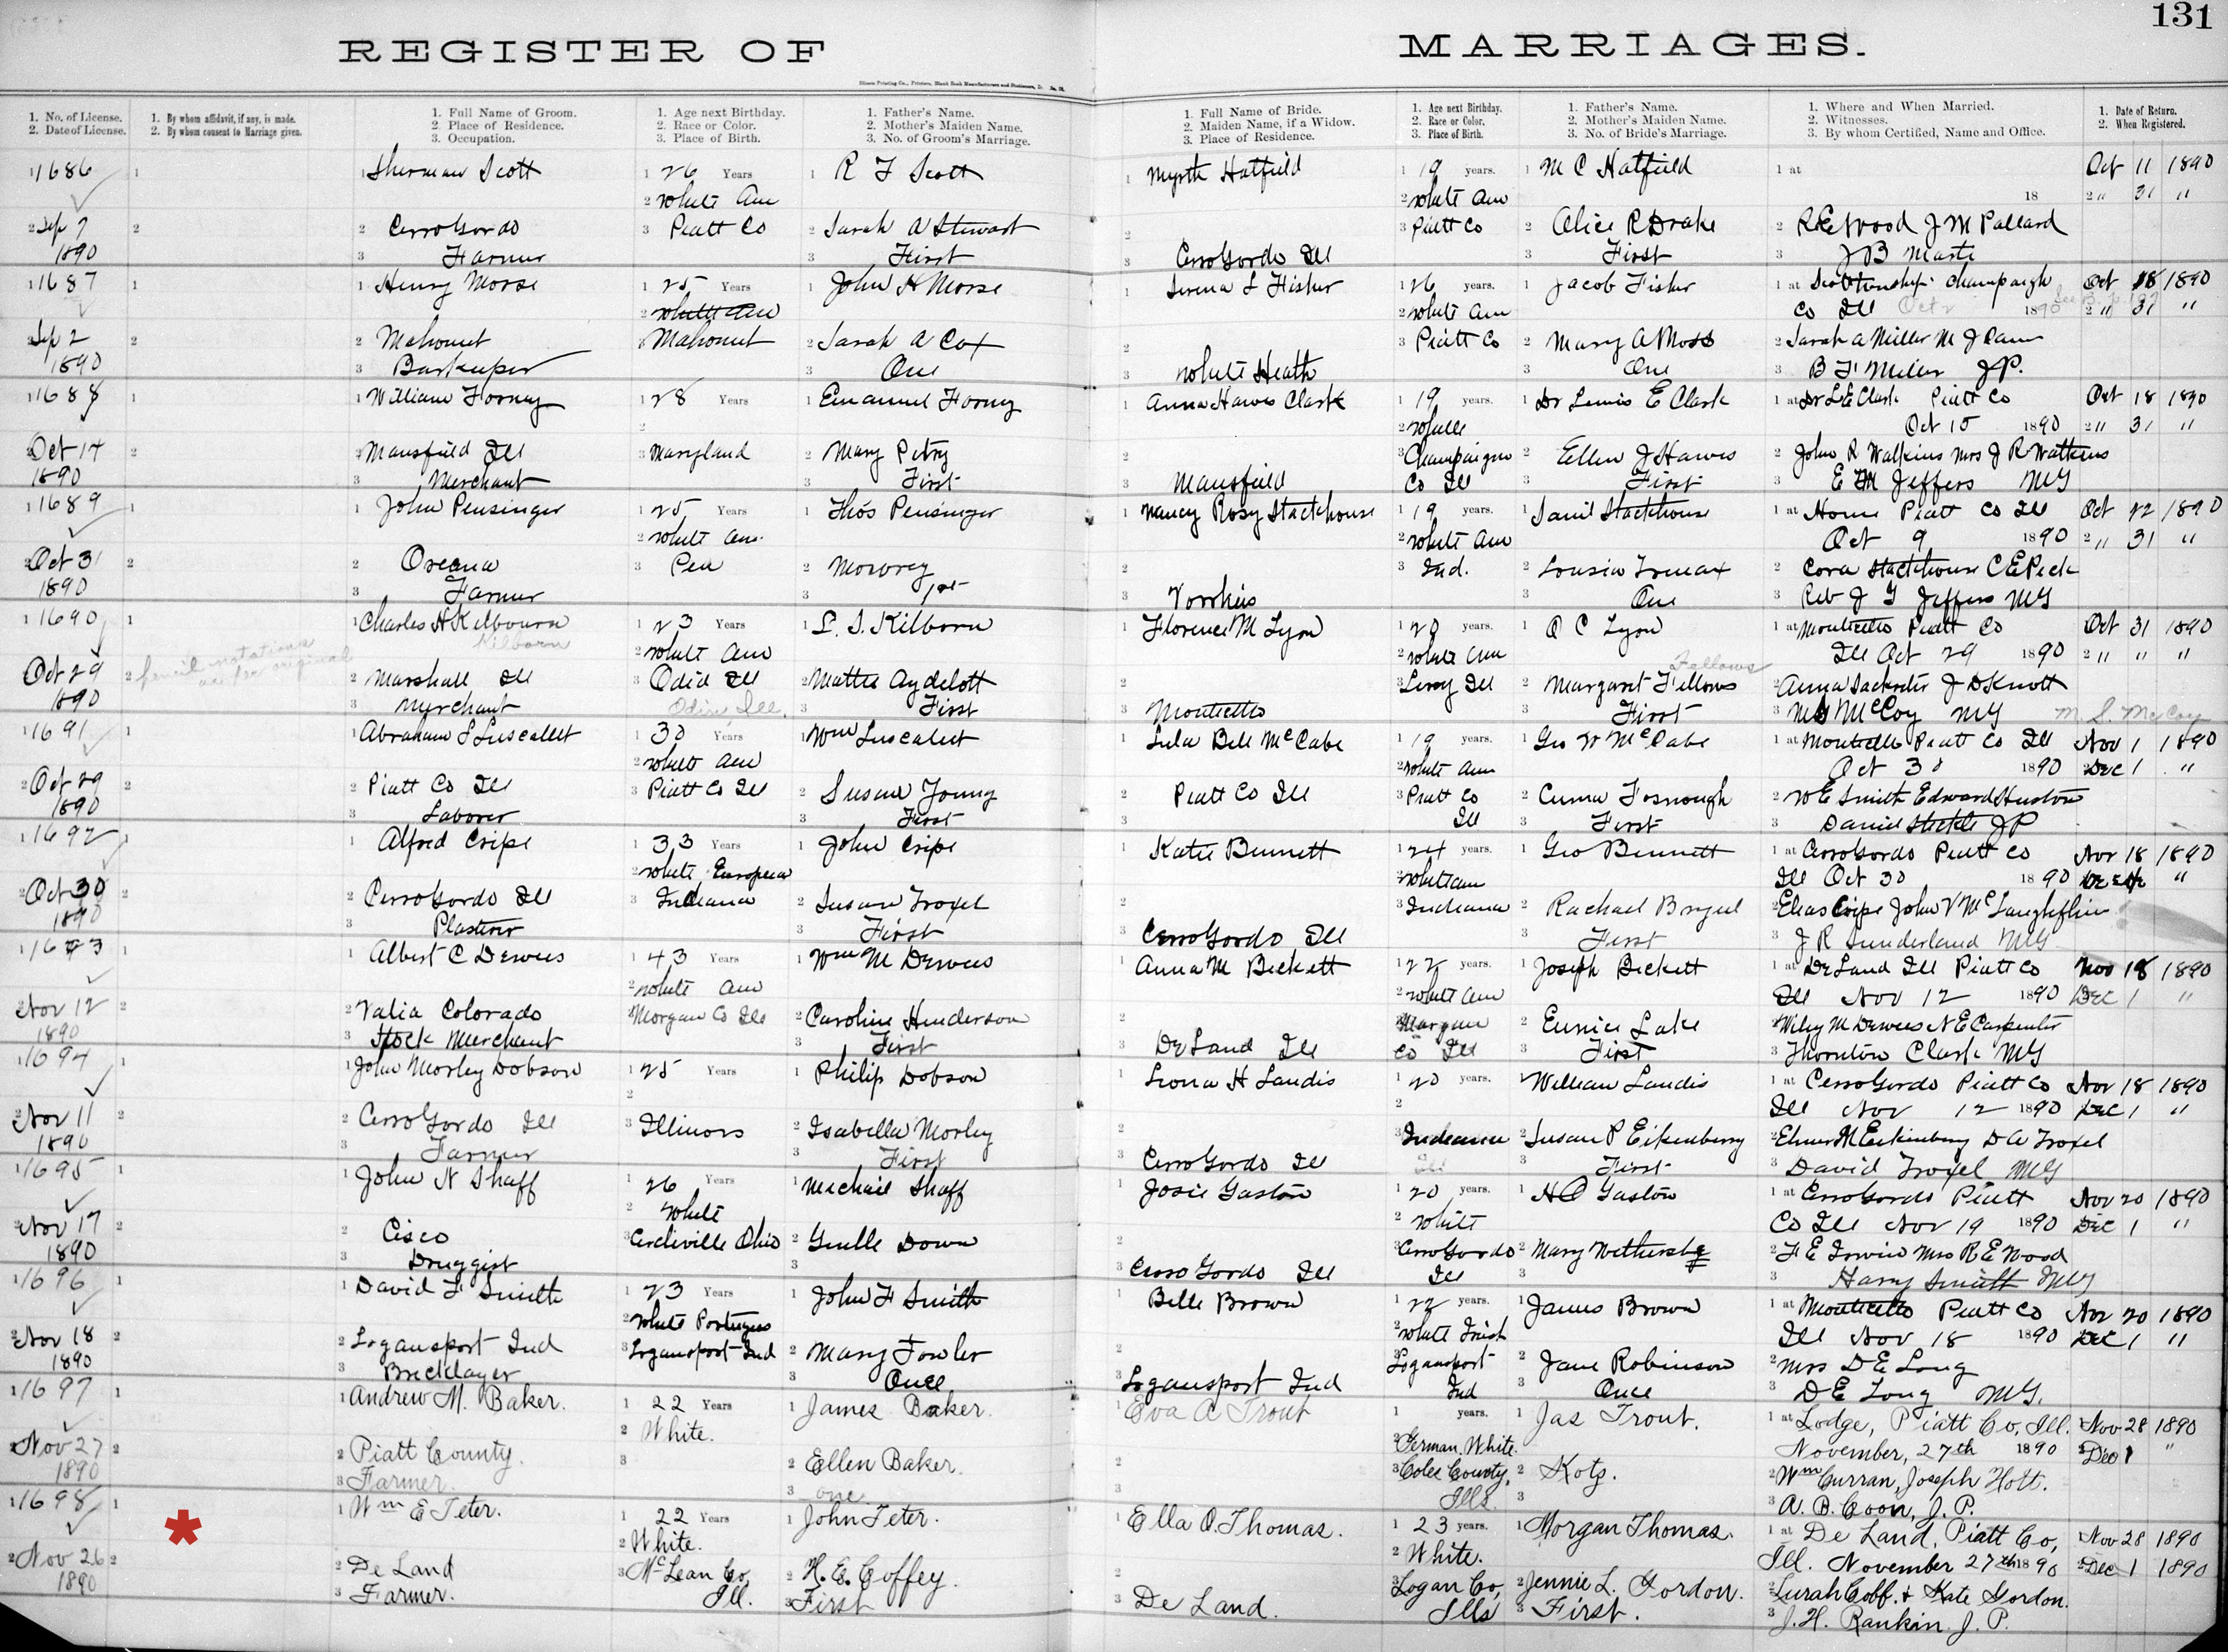 131
REGISTER OF MARRIAGES.
1. No. of License. 1. By whom affidavit, if any, is made. 1. Full Name of Groom. 1. Age next Birthday. 1. Father's Name. 1. Full Name of Bride. 1. Age next Birthday. 1. Father's Name. 1. Where and When Married. 1. Date of Return.
2. Date of License. 2. By whom consent to Marriage given. 2. Place of Residence. 2. Race or Color. 2. Mother's Maiden Name. 2. Maiden Name, if a Widow. 2. Race or Color. 2. Mother's Maiden Name. 2. Witnesses. 2. When Registered.
3. Occupation. 3. Place of Birth. 3. No. of Groom's Marriage. 3. Place of Residence. 3. Place of Birth. 3. No. of Bride's Marriage. 3. By whom Certified, Name and Office.
1 1686 1 1 Sherman Scott 1 26 Years 1 R F Scott 1 Myrth Hatfield 1 19 years. 1 M C Hatfield 1 at Oct 11 1890
2 White Am 2 White Am 18 2 " 31 "
2 Sep 7 2 2 Cerro Gordo 3 Piatt Co 2 Sarah A Stewart 2 3 Piatt Co 2 Alice R Drake 2 R E Wood J M Pallard
1890 3 Farmer 3 First 3 Cerro Gordo Ill 3 First 3 J B Marte
1 1687 1 1 Henry Morse 1 25 Years 1 John H Morse 1 Serena L Fisher 1 26 years. 1 Jacob Fisher 1 at Champaign Oct 18 1890
2 White Am 2 White Am Co Ill Oct 2 1890 2 " 31 "
2 Sep 2 2 2 Mahomet Mahomet 2 Sarah A Cox 2 3 Piatt Co 2 Mary A Moss 2 Sarah A Miller M J
1890 3 Barkeeper 3 One 3 White Heath 3 One 3 B F Miller J P.
1 1688 1 1 William Forney 1 28 Years 1 Emanuel Forny 1 Anna Hawes Clark 1 19 years. 1 Dr Lewis E Clark 1 at Dr L E Clark Piatt Co Oct 18 1890
2 2 White Oct 15 1890 2 " 31 "
2 Oct 14 2 2 Mansfield Ill 3 Maryland 2 Mary Petry 2 3 Champaign 2 Ellen J Hawes 2 John R Watkins Mrs J R Watkins
1890 3 Merchant 3 First 3 Mansfield Co Ill 3 First 3 E M Jeffers MG
1 1689 1 1 John Pensinger 1 25 Years 1 Thos Pensinger 1 Nancy Rosy Stackhouse 1 19 years. 1 Daniel Stackhouse 1 at Home Piatt Co Ill Oct 22 1890
2 White Am. 2 White Am Oct 9 1890 2 " 31 "
2 Oct 31 2 2 Oreana 3 Pen 2 Mowrey 2 3 Ind. 2 Lousia Lomax 2 Cora Stackhouse C E Peck
1890 3 Farmer 3 1st 3 Vorrhies 3 One 3 Rev J G Jeffers MG
1 1690 1 1 Charles H Kilbourn 1 23 Years 1 L. S. Kilborn 1 Florence M Lyon 1 20 years. 1 O C Lyon 1 at Monticello Piatt Co Oct 31 1890
Kilborn 2 White Am 2 White Am Fellows Ill Oct 29 1890 2 " " "
2 Oct 29 2 pencil notations as per original 2 Marshall Ill 3 Odid Ill 2 Mattie Aydelott 2 3 Leroy Ill 2 Margaret Fellows 2 Anna Sackriter J D Knott
1890 3 Merchant Odin, Ill. 3 First 3 Monticello 3 First 3 M S McCoy MG M. S. McCoy
1 1691 1 1 Abraham S Luscalett 1 30 Years 1 Wm Luscalett 1 Lula Bell McCabe 1 19 years. 1 Geo W McCabe 1 at Monticello Piatt Co Ill Nov 1 1890
2 White Am 2 White Am Oct 30 1890 2 Dec 1 "
2 Oct 29 2 2 Piatt Co Ill 3 Piatt Co Ill 2 Susan Young 2 Piatt Co Ill 3 Piatt Co 2 Fosnough 2 W E Smith Edward Huston
1890 3 Laborer 3 First 3 Ill 3 First 3 Daniel Stickle J P
1 1692 1 1 Alfred Cripe 1 33 Years 1 John Cripe 1 Katie Bennett 1 24 years. 1 Geo Bennett 1 at Cerro Gordo Piatt Co Nov 18 1890
2 White European 2 White Am Ill Oct 30 1890 "
2 Oct 30 2 2 Cerro Gordo Ill 3 Indiana 2 Susan Troxel 2 3 Indiana 2 Rachael 2 Elias Cripe John V
1890 3 Plasterer 3 First 3 Cerro Gordo Ill 3 First 3 J R Sunderland MG
1 1693 1 1 Albert C Dewees 1 43 Years 1 Wm M Dewees 1 Anna M Beckett 1 22 years. 1 Joseph Beckett 1 at DeLand Ill Piatt Co Nov 18 1890
2 White Am 2 White Am Ill Nov 12 1890 Dec 1 "
2 Nov 12 2 2 Valia Colorado 3 Morgan Co Ills 2 Caroline Henderson 2 3 Morgan 2 Eunice Lake 2 Wiley M Dewees N E Carpenter
1890 3 Stock Merchant 3 First 3 DeLand Ill Co Ill 3 First 3 Thornton Clark MG
1 1694 1 1 John Morley Dobson 1 25 Years 1 Philip Dobson 1 Leona H Landis 1 20 years. 1 William Landis 1 at Cerro Gordo Piatt Co Nov 18 1890
2 2 Ill Nov 12 1890 Dec 1 "
2 Nov 11 2 2 Cerro Gordo Ill 3 Illinois 2 Isabella Morley 2 3 Indiana 2 Susan P Eikenberry 2 Elmer M Eikenberry D A Troxel
1890 3 Farmer 3 First 3 Cerro Gordo Ill Ill 3 First 3 David Troxel MG
1 1695 1 1 John N Shaff 1 26 Years 1 Michael Shaff 1 Josie Gaston 1 20 years. 1 H O Gaston 1 at Cerro Gordo Piatt Nov 20 1890
2 White 2 White Co Ill Nov 19 1890 Dec 1 "
2 Nov 17 2 2 Cisco 3 Circleville Ohio 2 Down 2 3 Cerro Gordo 2 Mary 2 F E Irwin Mrs R E Wood
1890 3 Druggist 3 3 Cerro Gordo Ill Ill 3 3 Harry Smith MG
1 1696 1 1 David F Smith 1 23 Years 1 John F Smith 1 Belle Brown 1 22 years. 1 James Brown 1 at Monticello Piatt Co Nov 20 1890
2 White Portugese 2 White Irish Ill Nov 18 1890 Dec 1 "
2 Nov 18 2 2 Logansport Ind 3 Logansport Ind 2 Mary Fowler 2 3 Logansport 2 Jane Robinson 2 Mrs D E Long
1890 3 Bricklayer 3 Once 3 Logansport Ind Ind 3 Once 3 D E Long MG.
1 1697 1 1 Andrew M. Baker. 1 22 Years 1 James Baker. 1 Eva A Trout 1 years. 1 Jas Trout. 1 at Lodge, Piatt Co, Ill. Nov 28 1890
2 White. 2 German White. November, 27th 1890 2 Dec 1 "
2 Nov 27 2 2 Piatt County. 3 2 Ellen Baker. 2 3 Coles County, 2 Kotz. 2 Wm Curran, Joseph Hott.
1890 3 Farmer. 3 one. 3 Ills. 3 3 A. B. Coon, J. P.
1 1698 1 1 Wm E Teter. 1 22 Years 1 John Teter. 1 Ella O. Thomas. 1 23 years. 1 Morgan Thomas. 1 at De Land, Piatt Co, 1 Nov 28 1890
* 2 White. 2 White. Ill. November 27th 1890 2 Dec 1 1890
2 Nov 26 2 2 De Land 3 McLean Co, 2 H. E. Coffey. 2 3 Logan Co, 2 Jennie L. Gordon. 2 Surah Coff. & Kate Gordon.
1890 3 Farmer. Ill. 3 First 3 De Land. Ills 3 First. 3 J. H. Rankin. J. P.